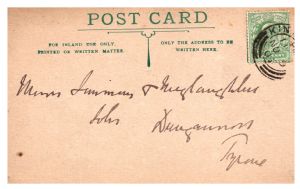 POST CARD
FOR INLAND USE ONLY.
PRINTED OR WRITTEN MATTER.
ONLY THE ADDRESS TO BE
WRITTEN HERE.
Messrs Simmons & Meglaughlin
Solrs
Dungannon
Tyrone
KIN